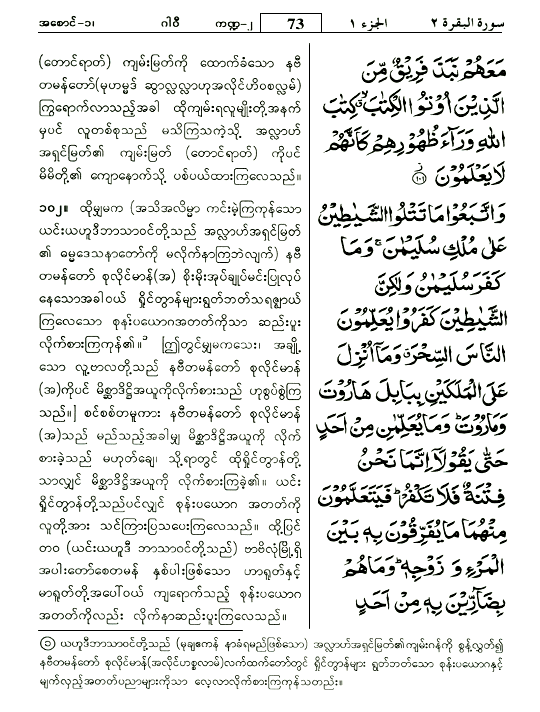 အစောင်-၁၊ ဂါဝီ ကဏ္ဍ-၂ 73 الجزء ١ سورة البقرة ٢
(တောင်ရာတ်) ကျမ်းမြတ်ကို ထောက်ခံသော နဗီ
တမန်တော်(မုဟမ္မဒ် ဆွာလ္လလ္လာဟုအလိုင်ဟိဝစလ္လမ်)
ကြွရောက်လာသည့်အခါ ထိုကျမ်းရလူမျိုးတို့အနက်
မှပင် လူတစ်စုသည် မသိကြသကဲ့သို့ အလ္လာဟ်
အရှင်မြတ်၏ ကျမ်းမြတ် (တောင်ရာတ်) ကိုပင်
မိမိတို့၏ ကျောနောက်သို့ ပစ်ပယ်ထားကြလေသည်။
၁၀၂။ ထိုမျှမက (အသိအလိမ္မာ ကင်းမဲ့ကြကုန်သော
ယင်းယဟူဒီဘာသာဝင်တို့သည် အလ္လာဟ်အရှင်မြတ်
၏ ဓမ္မဒေသနာတော်ကို မလိုက်နာကြဘဲလျက်) နဗီ
တမန်တော် စုလိုင်မာန်(အ) စိုးမိုးအုပ်ချုပ်မင်းပြုလုပ်
နေသောအခါဝယ် ရှိုင်တွာန်များရွတ်ဘတ်သရဇ္ဈာယ်
ကြလေသော စုန်းပယောဂအတတ်ကိုသာ ဆည်းပူး
လိုက်စားကြကုန်၏။ [ဤတွင်မျှမကသေး၊ အချို့
သော လူ့ဗာလတို့သည် နဗီတမန်တော် စုလိုင်မာန်
(အ)ကိုပင် မိစ္ဆာဒိဋ္ဌိအယူကိုလိုက်စားသည် ဟုစွပ်စွဲကြ
သည်။] စင်စစ်တမူကား နဗီတမန်တော် စုလိုင်မာန်
(အ)သည် မည်သည့်အခါမျှ မိစ္ဆာဒိဋ္ဌိအယူကို လိုက်
စားခဲ့သည် မဟုတ်ချေ၊ သို့ရာတွင် ထိုရှိုင်တွာန်တို့
သာလျှင် မိစ္ဆာဒိဋ္ဌိအယူကို လိုက်စားကြခဲ့၏။ ယင်း
ရှိုင်တွာန်တို့သည်ပင်လျှင် စုန်းပယောဂ အတတ်ကို
လူတို့အား သင်ကြားပြသပေးကြလေသည်။ ထို့ပြင်
တဝ (ယင်းယဟူဒီ ဘာသာဝင်တို့သည်) ဗာဗိလုံမြို့ရှိ
အပါးတော်စေတမန် နှစ်ပါးဖြစ်သော ဟာရူတ်နှင့်
မာရူတ်တို့အပေါ်ဝယ် ကျရောက်သည့် စုန်းပယောဂ
အတတ်ကိုလည်း လိုက်နာဆည်းပူးကြလေသည်။
مَعَهُمْ نَبَذَ فَرِيْقٌ مِّنَ
الَّذِيْنَ اُوْتُوا الْكِتٰبَ ۙ كِتٰبَ
اللّٰهِ وَرَآءَ ظُهُوْرِهِمْ كَاَنَّهُمْ
لَا يَعْلَمُوْنَ ۝١٠١
وَاتَّبَعُوْا مَا تَتْلُوا الشَّيٰطِيْنُ
عَلٰى مُلْكِ سُلَيْمٰنَ ۚ وَمَا
كَفَرَ سُلَيْمٰنُ وَلٰكِنَّ
الشَّيٰطِيْنَ كَفَرُوْا يُعَلِّمُوْنَ
النَّاسَ السِّحْرَ ۗ وَمَآ اُنْزِلَ
عَلَى الْمَلَكَيْنِ بِبَابِلَ هَارُوْتَ
وَمَارُوْتَ ؕ وَمَا يُعَلِّمٰنِ مِنْ اَحَدٍ
حَتّٰى يَقُوْلَآ اِنَّمَا نَحْنُ
فِتْنَةٌ فَلَا تَكْفُرْ ؕ فَيَتَعَلَّمُوْنَ
مِنْهُمَا مَا يُفَرِّقُوْنَ بِهٖ بَيْنَ
الْمَرْءِ وَ زَوْجِهٖ ؕ وَمَا هُمْ
بِضَآرِّيْنَ بِهٖ مِنْ اَحَدٍ
(၁) ယဟူဒီဘာသာဝင်တို့သည် (မုချဧကန် နာခံရမည်ဖြစ်သော) အလ္လာဟ်အရှင်မြတ်၏ကျမ်းဂန်ကို စွန့်လွှတ်၍
နဗီတမန်တော် စုလိုင်မာန်(အလိုင်ဟစ္စလာမ်)လက်ထက်တော်တွင် ရှိုင်တွာန်များ ရွတ်ဘတ်သော စုန်းပယောဂနှင့်
မျက်လှည့်အတတ်ပညာများကိုသာ လေ့လာလိုက်စားကြကုန်သတည်း။